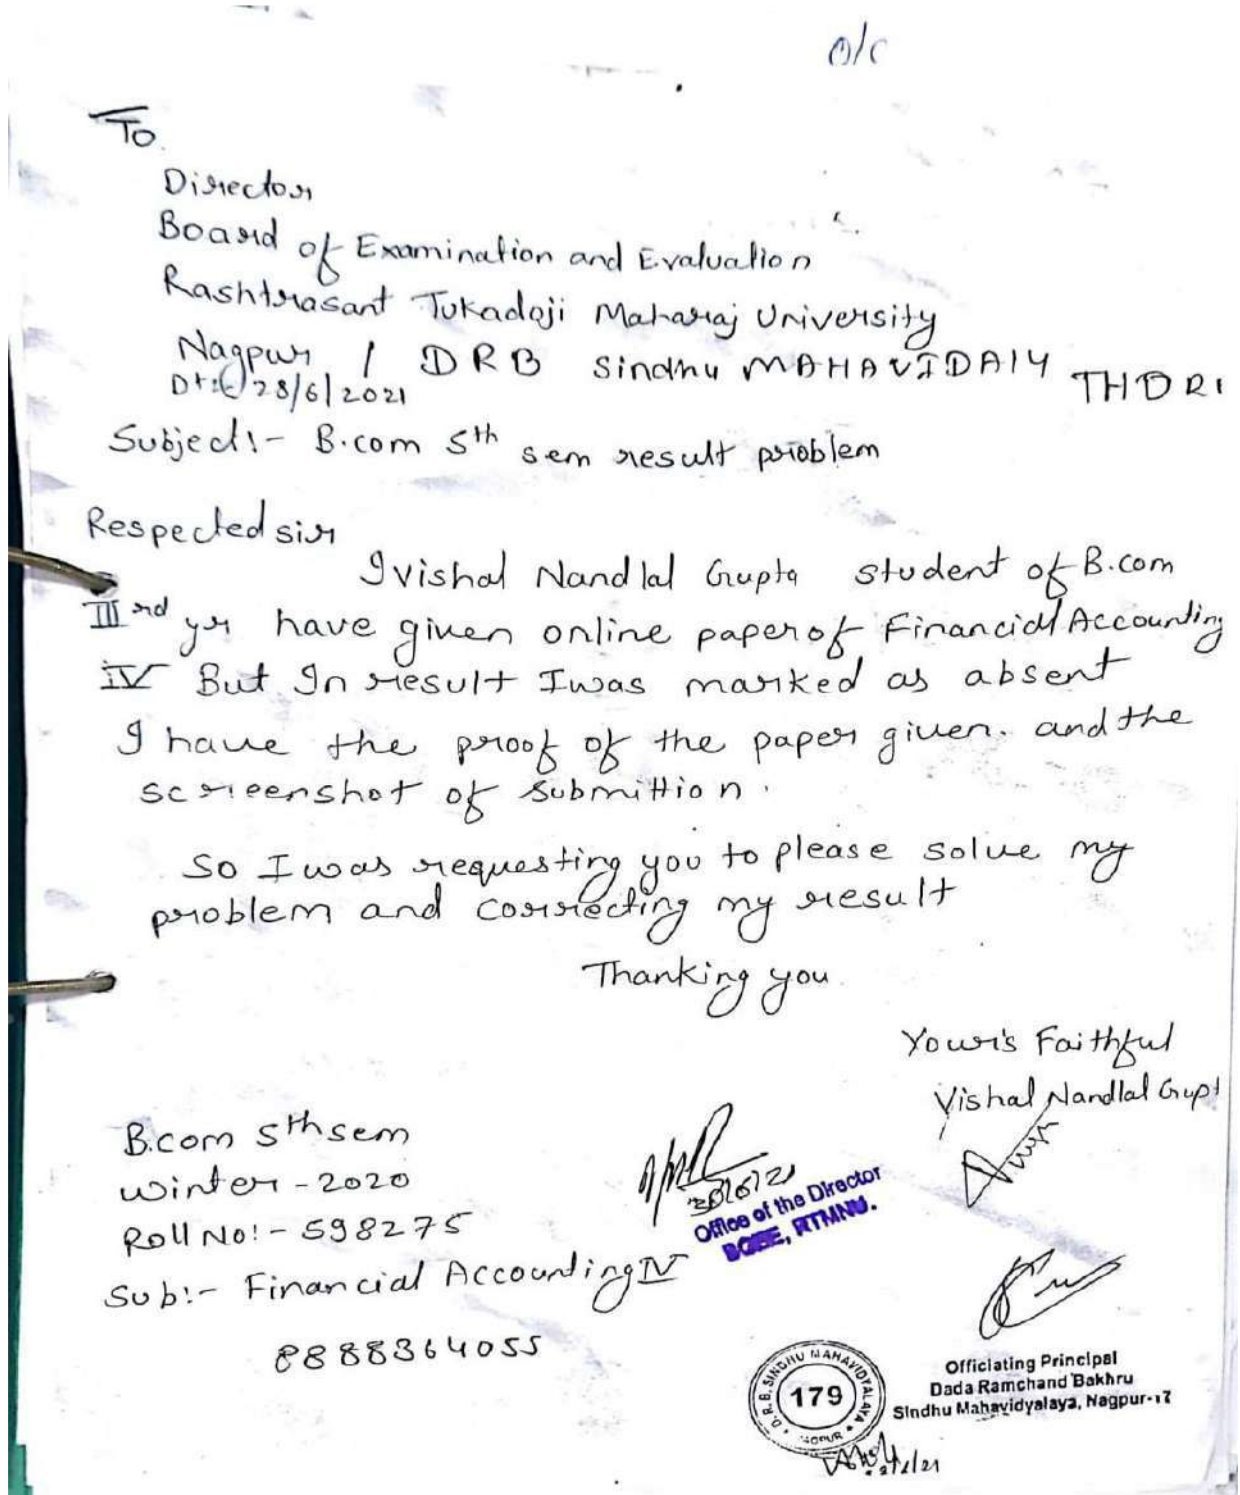 o/c
To
Director
Board of Examination and Evaluation
Rashtrasant Tukadoji Maharaj University
Nagpur / DRB Sindhu MAHAVIDAIY THORI
28/6/2021
Subject:- B.com 5th sem result problem
Respected sir
I vishal Nandlal Gupta student of B.com
III rd yr have given online paper of Financial Accounting
IV But In result I was marked as absent
I have the proof of the paper given. and the
screenshot of submittion.
So I was requesting you to please solve my
problem and correcting my result
Thanking you
Your's Faithful
Vishal Nandlal Gupt
B.com 5th sem
winter - 2020
Roll No:- 598275
Sub:- Financial Accounting IV
8888364055
Office of the Director
BOEE, RTMNU.
D.R.B. SINDHU MAHAVIDYALAYA
179
Officiating Principal
Dada Ramchand Bakhru
Sindhu Mahavidyalaya, Nagpur-17